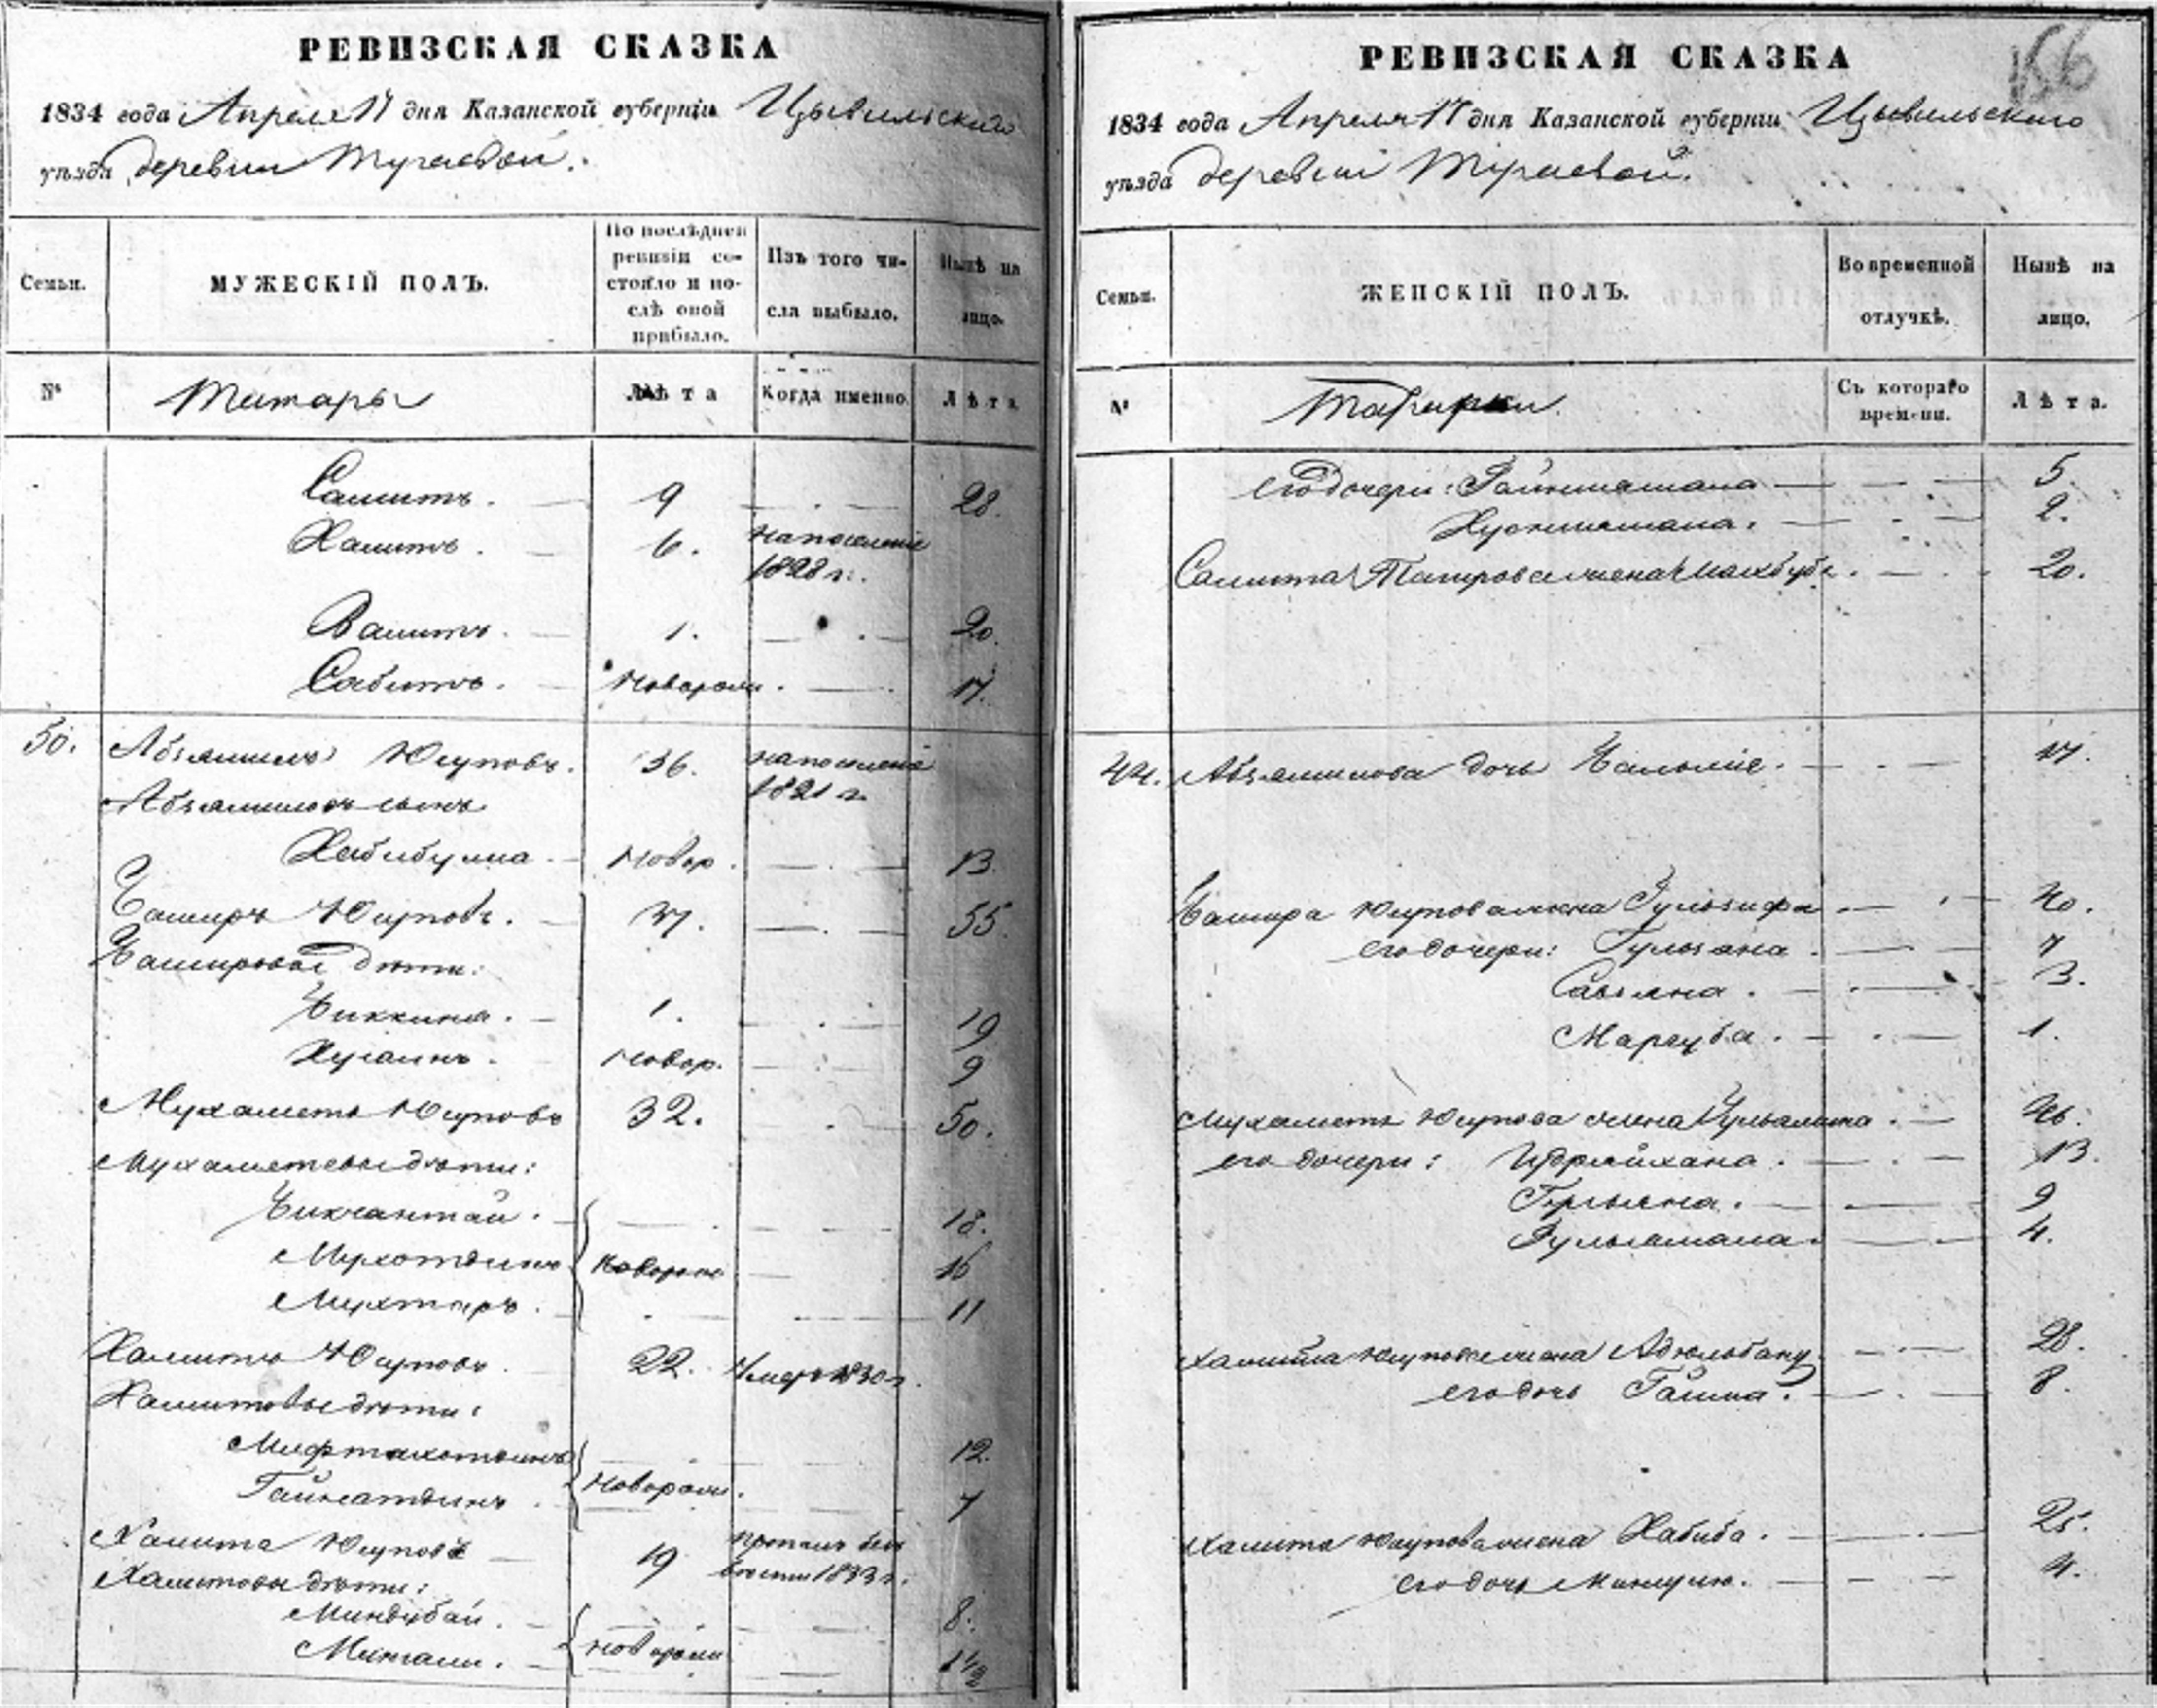 РЕВИЗСКАЯ СКАЗКА
1834 года Апреля 17 дня Казанской губернiи Цывильскаго
уѣзда деревни Тугаевой.
Семьи.
МУЖЕСКIЙ ПОЛЪ.
По послѣдней ревизiи состояло и послѣ оной прибыло.
Изъ того числа выбыло.
Нынѣ на лицо.
№
Татары
Лѣта
Когда именно.
Лѣта
Самитъ. 9 28.
Хамитъ. 6. на поселенiе
1828 г.
Вамитъ. 1. 20.
Сабитъ. новорож. 17.
50. Абзялилъ Юсуповъ. 36. на поселенiе
Абзялиловъ сынъ 1821 г.
Хабибулла. новор. 13.
Баширъ Юсуповъ. 37. 55.
Башировы дѣти:
Биккиня. 1. 19
Хусаинъ. новор. 9
Мухаметъ Юсуповъ 32. 50.
Мухаметевы дѣти:
Бикчантай. 18.
новорож 16
Мухтаръ. 11
Халитъ Юсуповъ. 22. Умеръ 1830 г.
Халитовы дѣти:
Мифтахотдинъ 12.
Гайнатдинъ. новорож. 7
Хамитъ Юсуповъ 19 пропалъ безъ
Хамитовы дѣти: вѣсти 1833 г.
Миндубай. 8.
новорож 1 1/2
РЕВИЗСКАЯ СКАЗКА 156
1834 года Апреля 17 дня Казанской губернiи Цывильскаго
уѣзда деревни Тугаевой.
Семьи.
ЖЕНСКIЙ ПОЛЪ.
Во временной отлучкѣ.
Нынѣ на лицо.
№
Татарки
Съ котораго времени.
Лѣта.
его дочери: 5.
2.
Самита Тагирова жена Махбубе. 20.
дочь 17.
Башира Юсупова жена Гульзифа 40.
его дочери: Гульзана. 7
3.
Маргуба. 1.
Мухаметя Юсупова жена 46.
его дочери: 13.
9
4.
Халита Юсупова жена 28.
его дочь 8.
Хамита Юсупова жена Хабиба. 25.
его дочь 4.